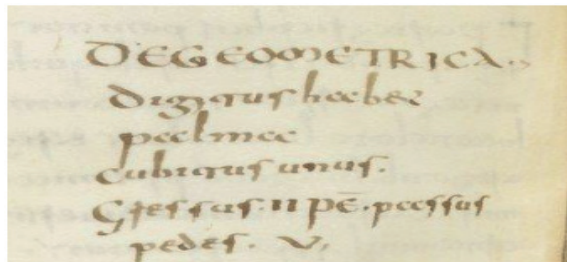 DE GEOMETRICA.,
digitus habet
palma
cubitus unus.
Gressus. II PĒ. passus
pedes. V,